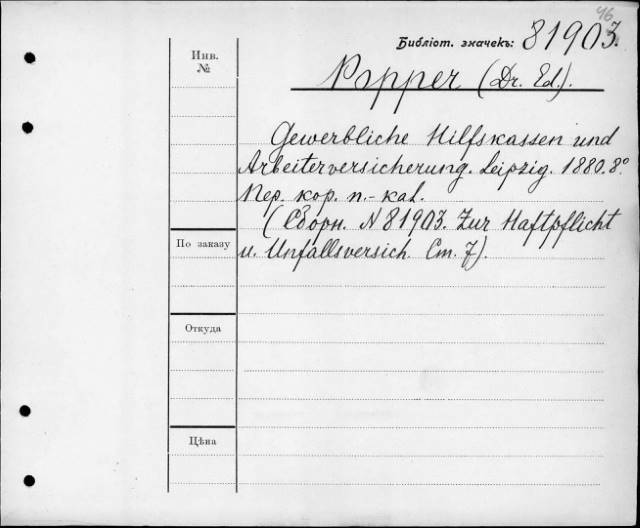 46
Библіот. значекъ: 81903.
Инв.
№
Popper (Dr. Ed.).
Gewerbliche Hilfskassen und
Arbeiterversicherung. Leipzig. 1880. 8°
Пер. кор. п.-кал.
(Сборн. N 81903. Zur Haftpflicht
По заказу
u. Unfallsversich. Ст. 7).
Откуда
Цѣна